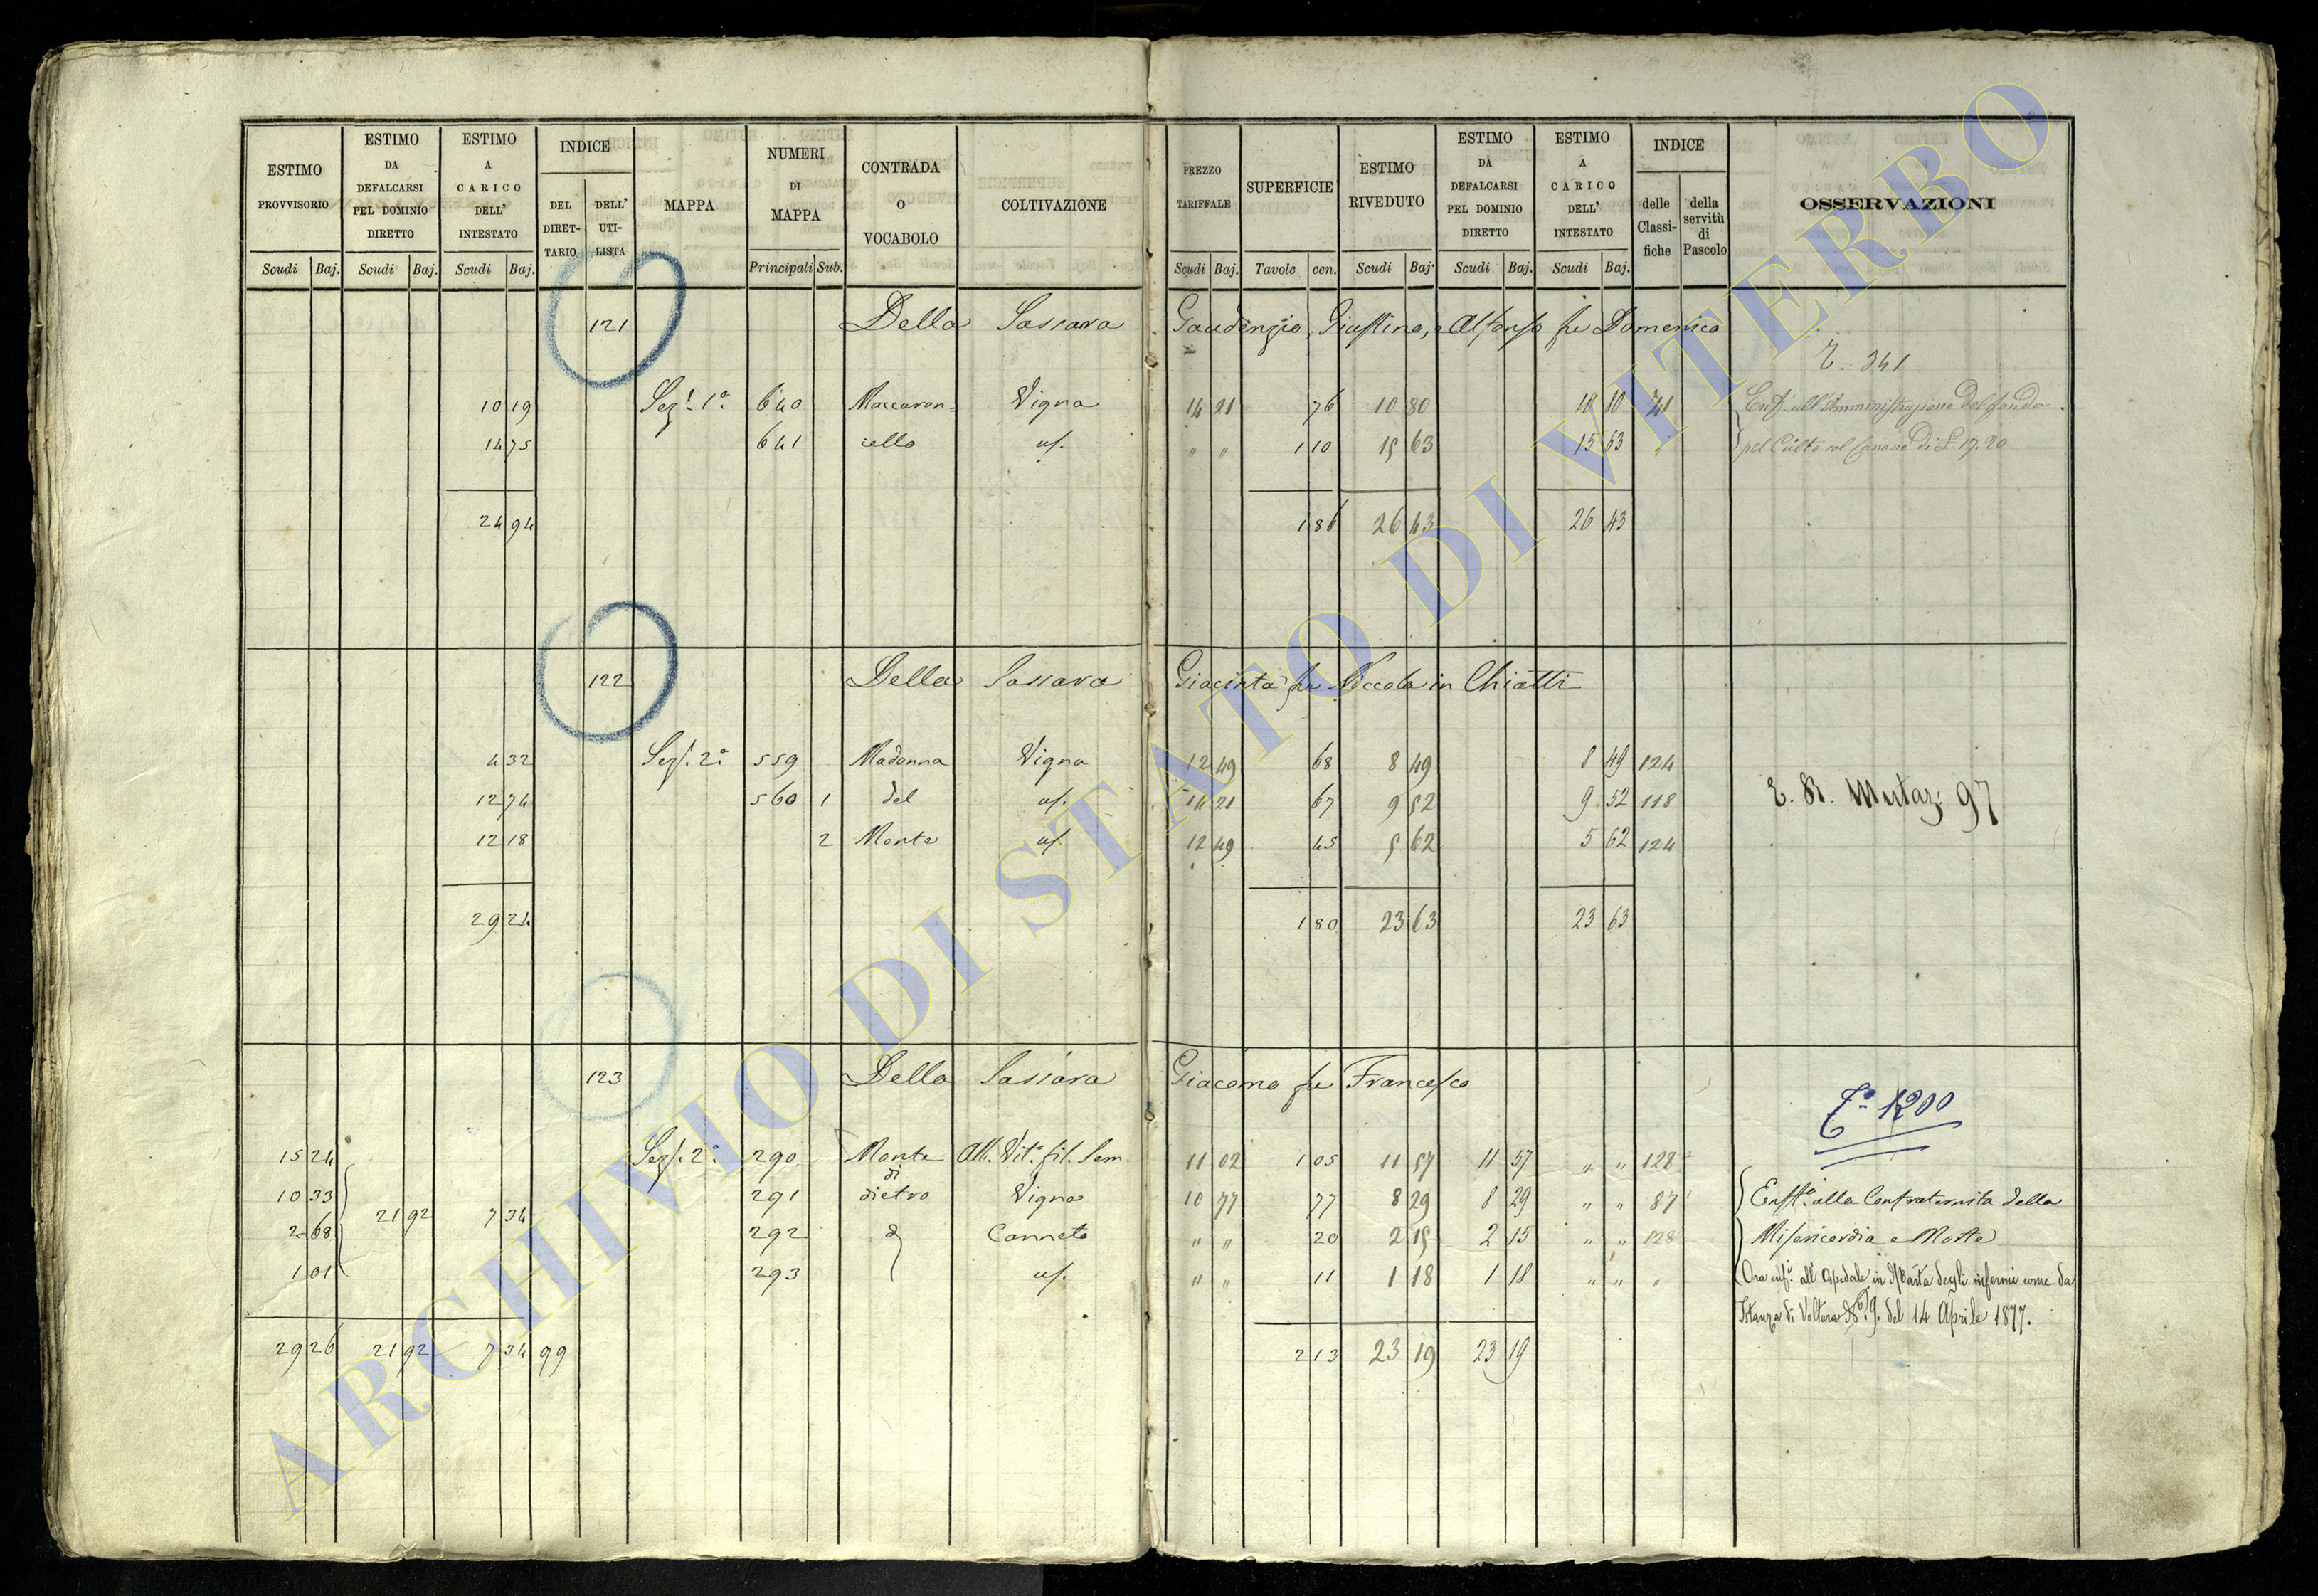 ESTIMO PROVVISORIO
ESTIMO DA DEFALCARSI PEL DOMINIO DIRETTO
ESTIMO A CARICO DELL' INTESTATO
INDICE
DEL DIRET-TARIO
DELL' UTI-LISTA
MAPPA
NUMERI DI MAPPA
CONTRADA O VOCABOLO
COLTIVAZIONE
PREZZO TARIFFALE
SUPERFICIE
ESTIMO RIVEDUTO
ESTIMO DA DEFALCARSI PEL DOMINIO DIRETTO
ESTIMO A CARICO DELL' INTESTATO
INDICE
delle Classi-fiche
della servitù di Pascolo
OSSERVAZIONI
Scudi Baj. Scudi Baj. Scudi Baj. Principali Sub. Scudi Baj. Tavole cen. Scudi Baj. Scudi Baj. Scudi Baj.
121 Della Sassara Gaudenzio, Giustino, e Alfonso fu Domenico
341
10 19 Sez. 1a 640 Maccaron= Vigna 14 21 76 10 80 10 80 71 Enf. all'Amministrazione del fondo
14 75 641 cello id. " " 1 10 15 63 15 63 " pel Culto col Canone di L. 17.20
24 94 1 86 26 43 26 43
122 Della Sassara Giacinta fu Niccola in Chiatti
4 32 Sez. 2a 559 Madonna Vigna 12 49 68 8 49 8 49 124
12 74 560 1 del id. 14 21 67 9 52 9 52 118 E. R. Mutaz: 97
12 18 2 Monte id. 12 49 45 5 62 5 62 124
29 24 1 80 23 63 23 63
123 Della Sassara Giacomo fu Francesco
1200
15 24 Sez. 2a 290 Monte di Alb. Vit. fil. Sem. 11 02 1 05 11 57 11 57 " " 128
10 33 291 dietro Vigna 10 77 77 8 29 8 29 " " 87 Enft. alla Confraternita della
2 68 21 92 7 34 292 Canneto " " 20 2 15 2 15 " " 128 Misericordia e Morte
1 01 293 id. " " 11 1 18 1 18 " " " Ora enf. all' Ospedale in Marta degli infermi come da
Istanza di Voltura N. 9. del 14 Aprile 1877.
29 26 21 92 7 34 99 2 13 23 19 23 19
ARCHIVIO DI STATO DI VITERBO